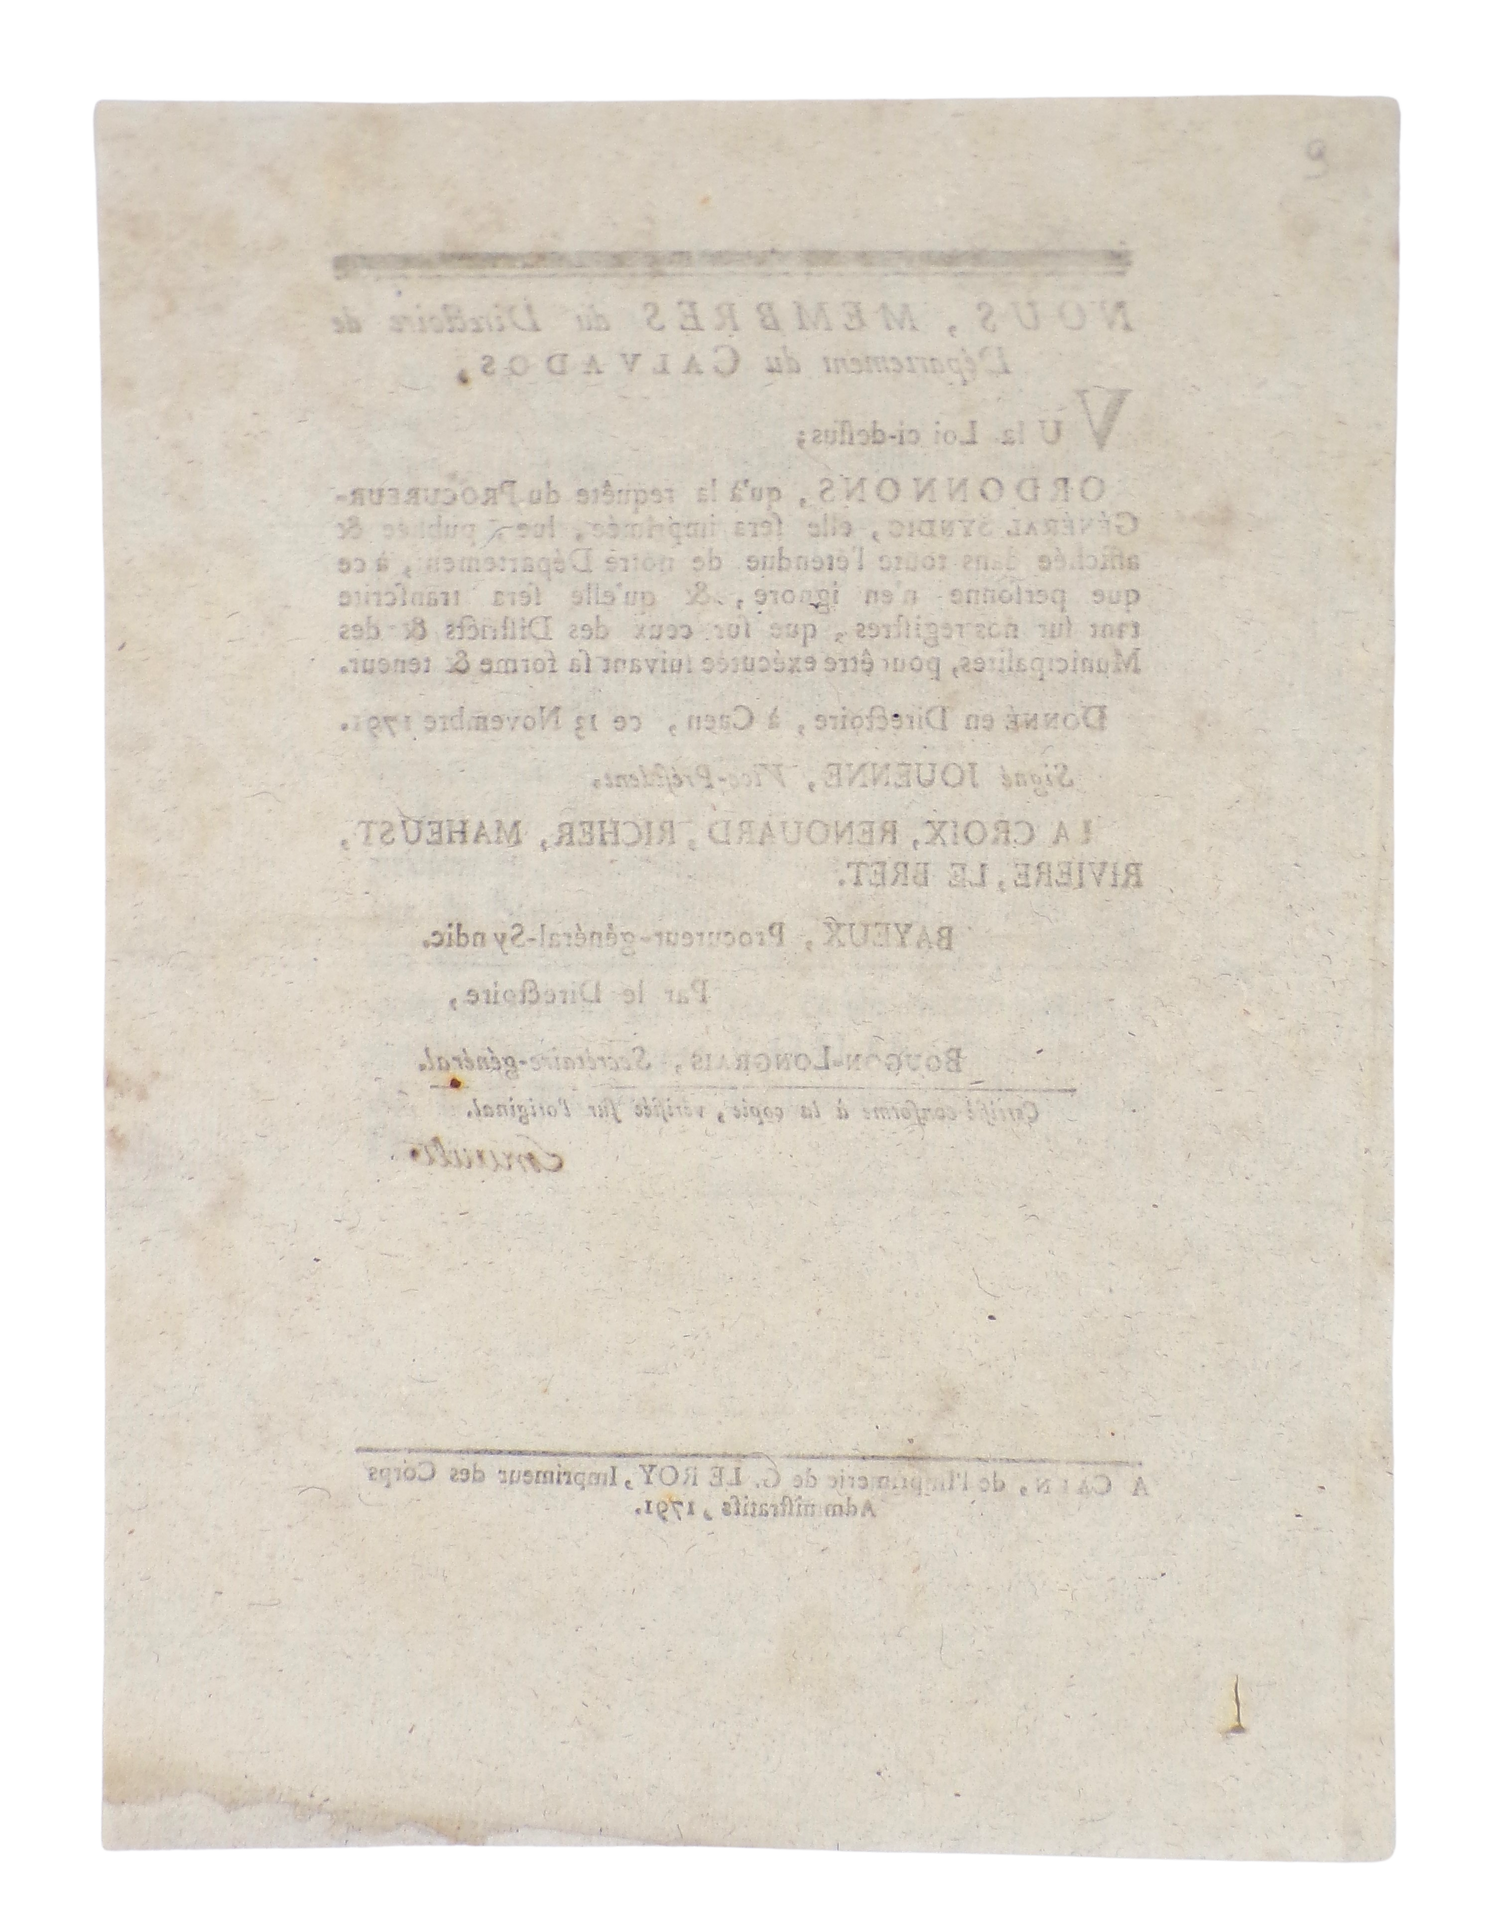 NOUS, MEMBRES du Directoire de
Département du CALVADOS,
VU la Loi ci-dessus;
ORDONNONS, qu'à la requête du PROCUREUR-
GÉNÉRAL SYNDIC, elle sera imprimée, lue, publiée &
affichée dans toute l'étendue de notre Département, à ce
que personne n'en ignore, & qu'elle sera transcrite
tant sur nos registres, que sur ceux des Districts & des
Municipalités, pour être exécutée suivant sa forme & teneur.
DONNÉ en Directoire, à Caen, ce 13 Novembre 1791.
Signé JOUENNE, Vice-Président.
LA CROIX, RENOUARD, RICHER, MAHEUST,
RIVIERE, LE BRET.
BAYEUX, Procureur-général-Syndic.
Par le Directoire,
BOUGON-LONGRAIS, Secrétaire-général.
Certifié conforme à la copie, vérifiée sur l'original.
A CAEN, de l'Imprimerie de G. LE ROY, Imprimeur des Corps
Administratifs, 1791.